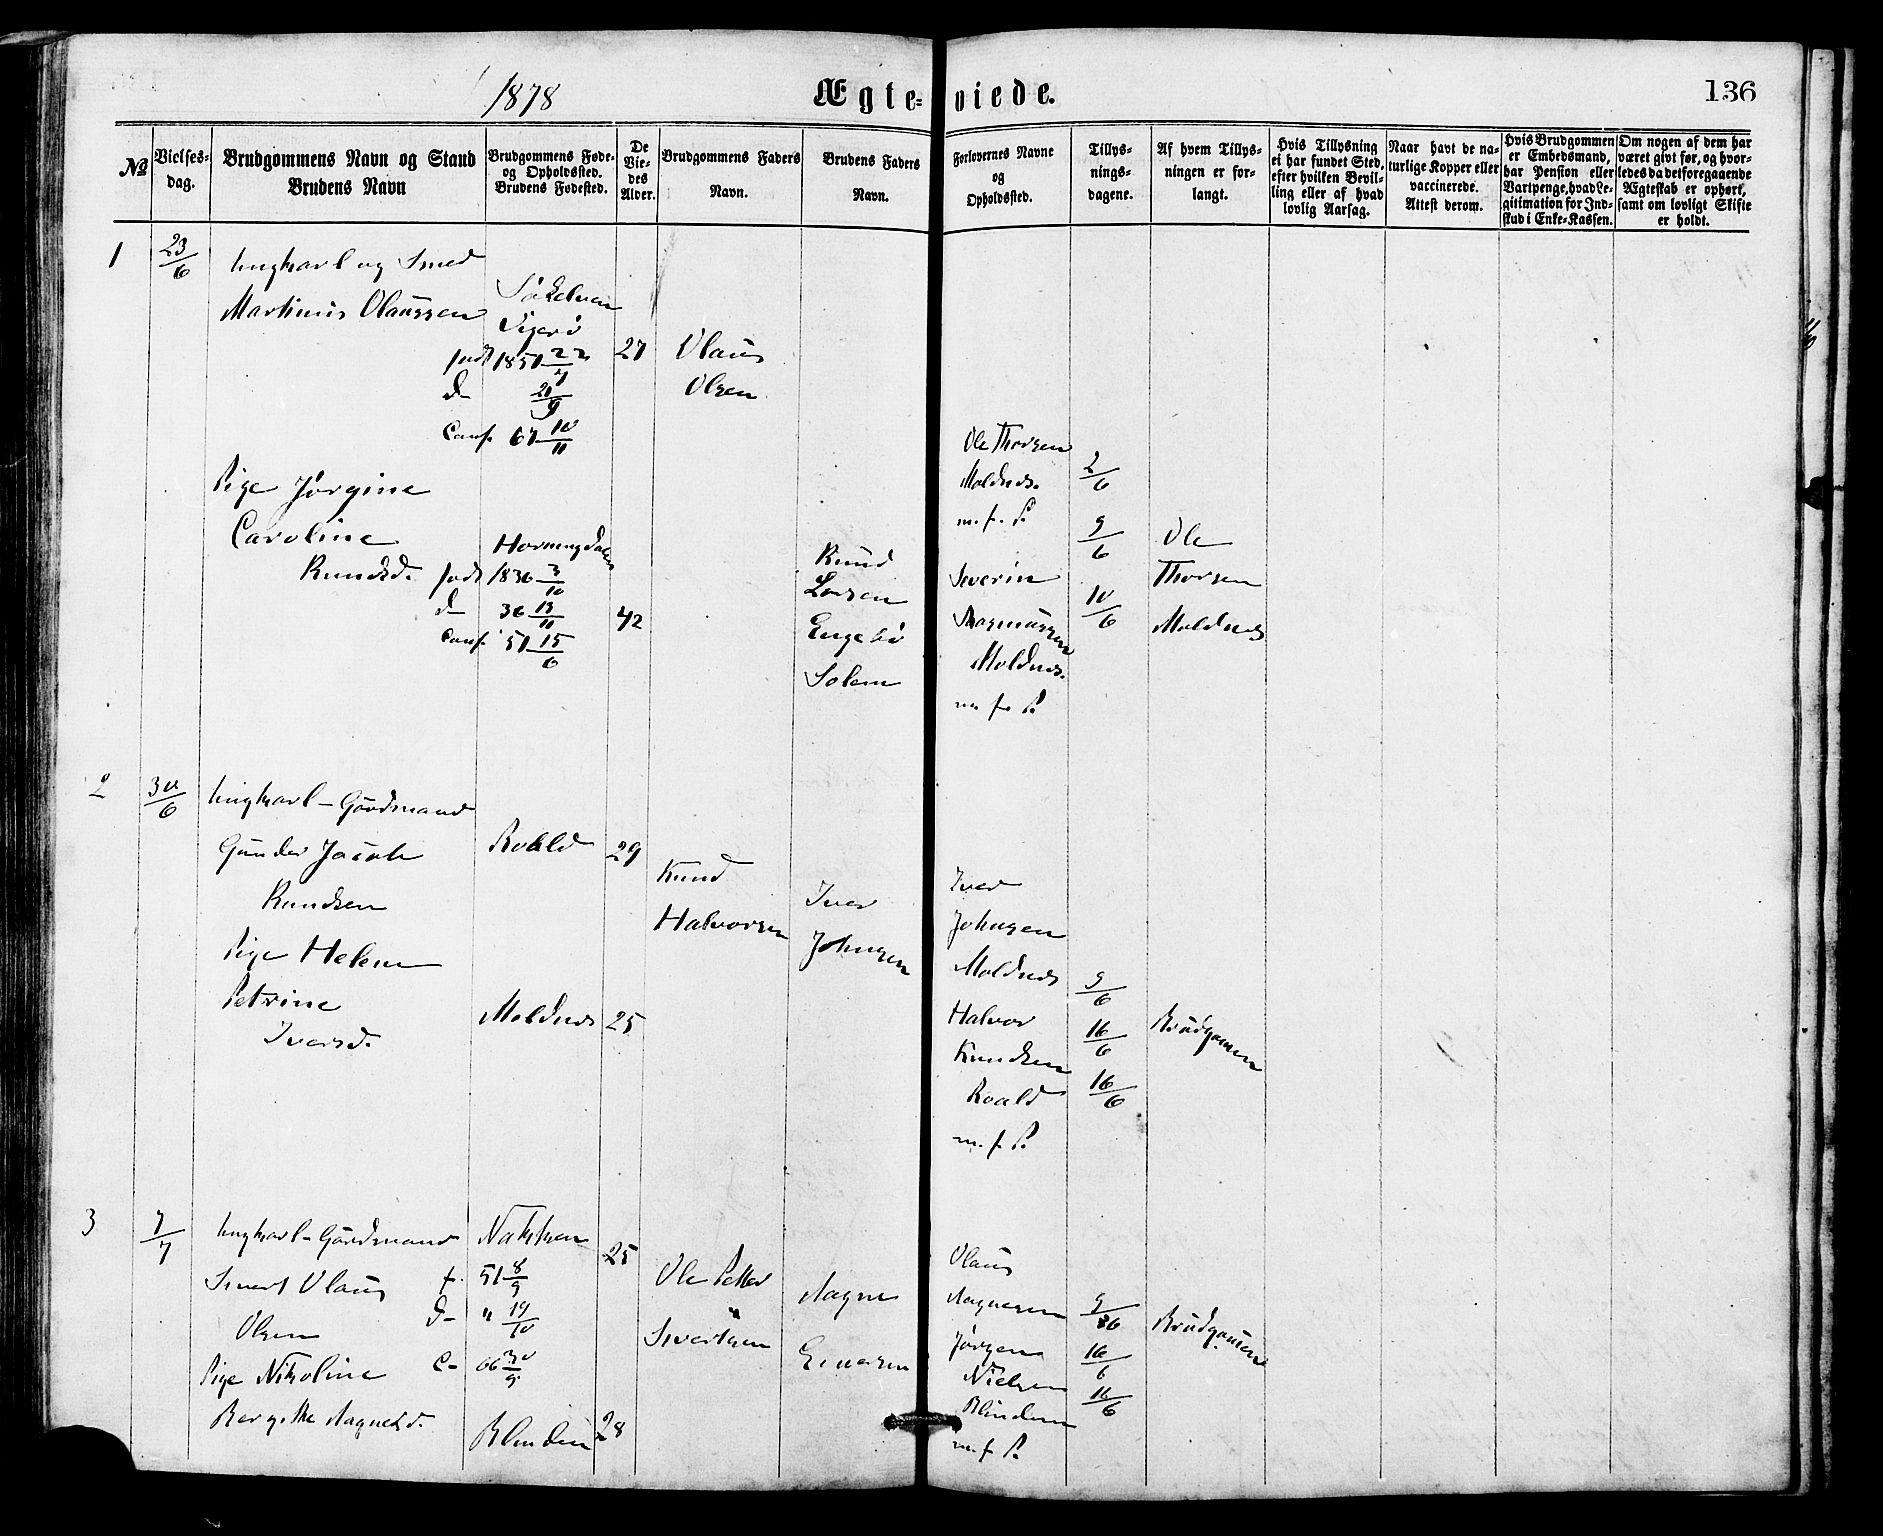 1878
Ægte-viede.
136
No
Vielses-
dag.
Brudgommens Navn og Stand
Brudens Navn
Brudgommens Føde-
og Opholdssted.
Brudens Fødested.
De
Vie-
des
Alder.
Brudgommens Faders
Navn.
Brudens Faders
Navn.
Forlovernes Navne
og
Opholdssted.
Tillys-
nings-
dagene.
Af hvem Tillys-
ningen er for-
langt.
Hvis Tillysning
ei har fundet Sted,
efter hvilken Bevil-
ling eller af hvad
lovlig Aarsag.
Naar havt de na-
turlige Kopper eller
vaccinerede.
Attest derom.
Hvis Brudgommen
er Embedsmand,
har Pension eller
Vartpenge, hvad Le-
gitimation for Ind-
skud i Enke-Kassen.
Om nogen af dem har
været givt før, og hvor-
ledes da det foregaaende
Ægteskab er ophørt,
samt om lovligt Skifte
er holdt.
1
23/6
Ungkarl og Smed
Martinus Olaussen
født 1851 22/7
d-
Conf. 67 10/11
27
Olaus
Olsen
Pige Jørgine
Caroline
Knudsd.
Horningdalen
født 1836 3/10
d- 36 13/11
Conf. 51 15/6
42
Knud
Larsen
Engebø
Solem
Ole Thorsen
Moldnes.
m. f. P.
Severin
Rasmussen
Moldnes.
m. f. P.
2/6
9/6
10/6
Ole
Thorsen
Moldnes
2
30/6
Ungkarl - Gårdmand
Gunder Jacob
Knudsen
Roald
29
Knud
Halvorsen
Pige Helene
Petrine
Iversd.
Moldnes
25
Iver
Johnsen
Iver
Johnsen
Moldnes
Halvor
Knudsen
Roald
m. f. P.
9/6
16/6
16/6
Brudgomen
3
7/7
Ungkarl - Gårdmand
Sivert Olaus
Olsen
Nakken
f. 51 8/9
d- " 19/10
C- 66 30/9
25
Ole Petter
Sivertsen
Pige Nikoline
Bergitte Aagnesd.
Blindem
28
Aagne
Einersen
Olaus
Aagnesen
Jørgen
Nielsen
Blindem
m. f. P.
9/6
16/6
16/6
Brudgomen